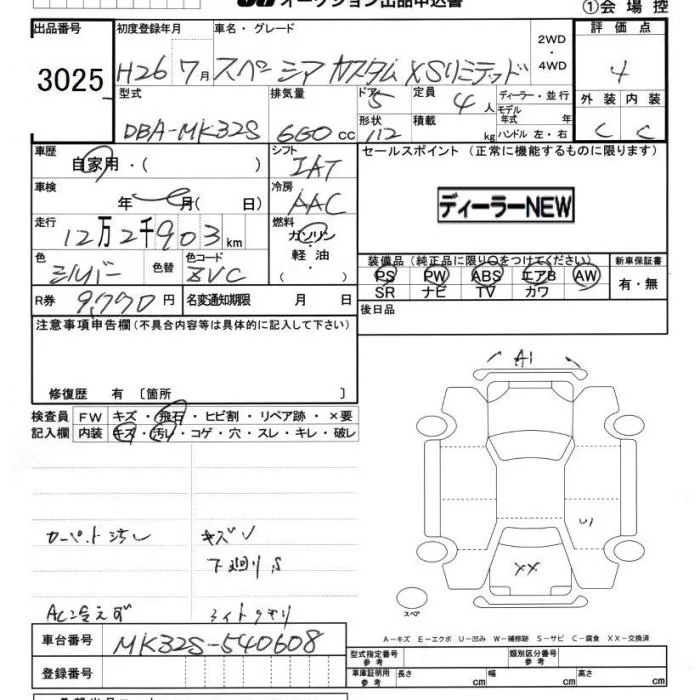 オークション出品申込書
①会場控
出品番号
3025
初度登録年月
H26 7月
車名・グレード
スペーシア カスタム XSリミテッド
2WD
・
4WD
評価点
4
型式
DBA-MK32S
排気量
660 cc
ドア 5
形状
定員 4 人
積載 kg
ディーラー・並行
モデル年式 年
ハンドル 左・右
外装 内装
C C
車歴
自家用・( )
シフト
IAT
セールスポイント (正常に機能するものに限ります)
ディーラーNEW
車検
年 月( 日)
冷房
AAC
走行
12万2千903km
燃料
ガソリン・
軽油・
( )
色
シルバー
色替
色コード
ZVC
装備品(純正品に限り○をつけてください)
PS PW ABS エアB AW
SR ナビ TV カワ
新車保証書
有・無
R券
9,770円
名変通知期限 月 日
後日品
注意事項申告欄(不具合内容等は具体的に記入して下さい)
修復歴 有〔箇所 〕
検査員記入欄
FW キズ・飛石・ヒビ割・リペア跡・×要
内装 キズ・汚れ・コゲ・穴・スレ・キレ・破レ
カーペット汚レ
キズソ
下廻りS
AC冷えず
ライトクモリ
A1
U1
XX
スペア
A-キズ E-エクボ U-凹み W-補修跡 S-サビ C-腐食 XX-交換済
車台番号
MK32S-540608
登録番号
型式指定番号
参考
類別区分番号
参考
車庫証明用
参考
長さ cm
幅 cm
高さ cm